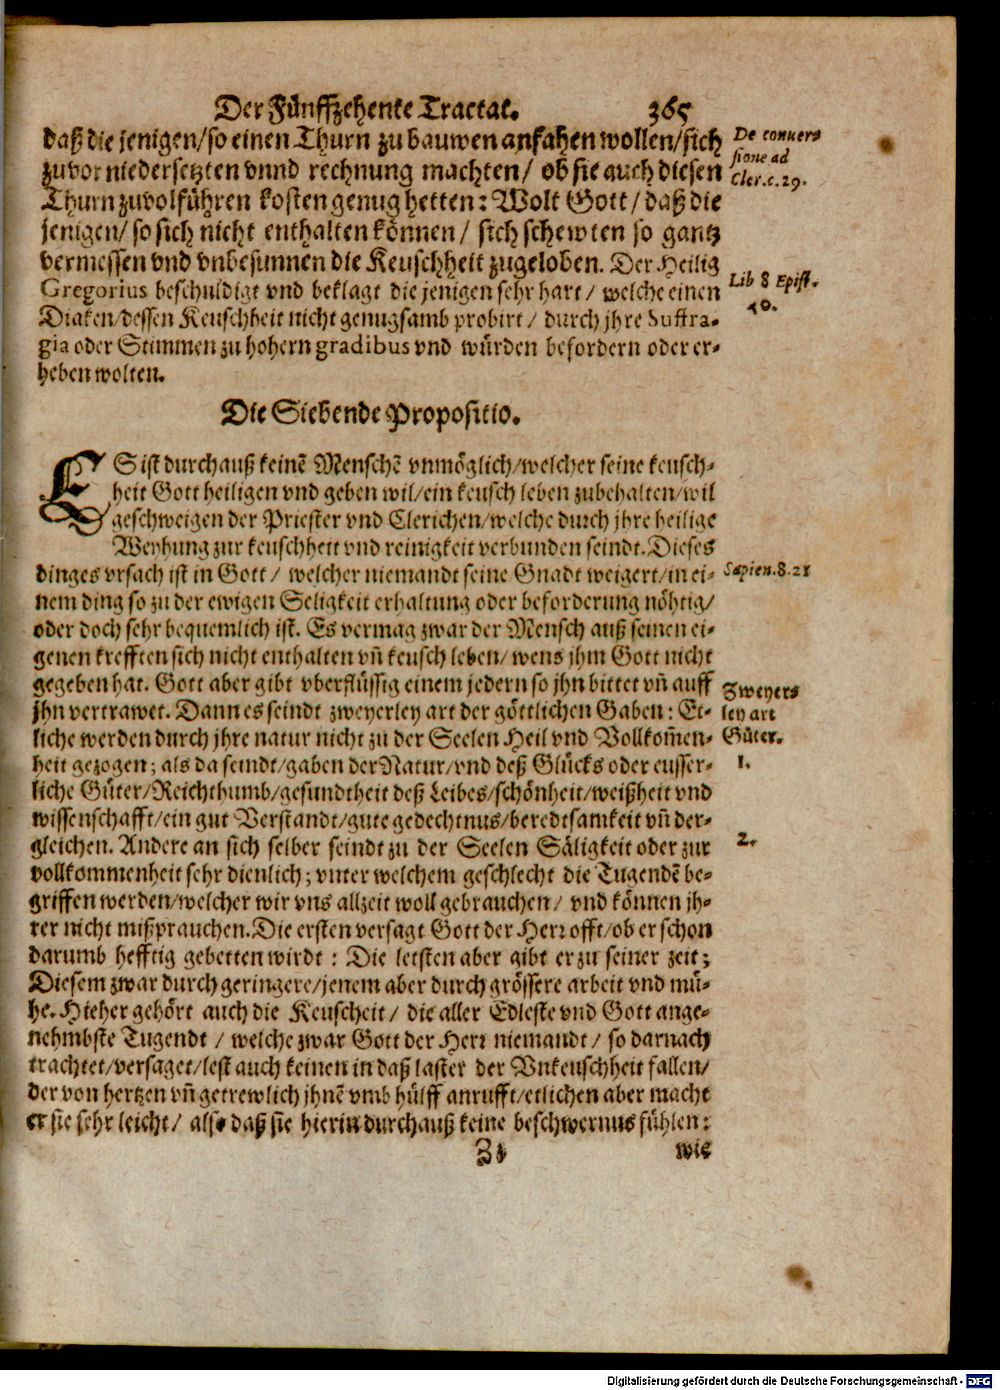 Der Fünffzehente Tractat. 365
daß die jenigen/so einen Thurn zu bauwen anfahen wollen/sich
zuvor niedersetzten vnnd rechnung machten/ ob sie auch diesen
Thurn zuvolführen kosten genug hetten: Wolt Gott/ daß die
jenigen/ so sich nicht enthalten können/ sich schewten so gantz
vermessen vnd vnbesunnen die Keuschheit zugeloben. Der Heilig
Gregorius beschuldigt vnd beklagt die jenigen sehr hart/ welche einen
Diaken/dessen Keuschheit nicht genugsamb probirt/ durch jhre Suffra-
gia oder Stimmen zu hohern gradibus vnd würden befordern oder er-
heben wolten.
De conuers
sione ad
Cler.c.29.
Lib 8 Epist.
40.
Die Siebende Propositio.
ES ist durchauß keinē Menschē vnmöglich/welcher seine keusch-
heit Gott heiligen vnd geben wil/ein keusch leben zubehalten/wil
geschweigen der Priester vnd Clerichen/welche durch jhre heilige
Weyhung zur keuschheit vnd reinigkeit verbunden seindt. Dieses
dinges vrsach ist in Gott/ welcher niemandt seine Gnadt weigert/in ei-
nem ding so zu der ewigen Seligkeit erhaltung oder beforderung nöhtig/
oder doch sehr bequemlich ist. Es vermag zwar der Mensch auß seinen ei-
genen krefften sich nicht enthalten vñ keusch leben/ wens jhm Gott nicht
gegeben hat. Gott aber gibt vberflüssig einem jedern so jhn bittet vñ auff
jhn vertrawet. Dann es seindt zweyerley art der göttlichen Gaben: Et-
liche werden durch jhre natur nicht zu der Seelen Heil vnd Vollkom̃en-
heit gezogen; als da seindt/gaben der Natur/vnd deß Glücks oder eusser-
liche Güter/Reichthumb/gesundtheit deß Leibes/schönheit/weißheit vnd
wissenschafft/ein gut Verstandt/gute gedechtnus/beredtsamkeit vñ der-
gleichen. Andere an sich selber seindt zu der Seelen Säligkeit oder zur
vollkommenheit sehr dienlich; vnter welchem geschlecht die Tugendē be-
griffen werden/welcher wir vns allzeit woll gebrauchen/ vnd können jh-
rer nicht mißprauchen. Die ersten versagt Gott der Herr offt/ob er schon
darumb hefftig gebetten wirdt: Die letsten aber gibt er zu seiner zeit;
Diesem zwar durch geringere/jenem aber durch grössere arbeit vnd mü-
he. Hieher gehört auch die Keuscheit/ die aller Edleste vnd Gott ange-
nehmbste Tugendt/ welche zwar Gott der Herr niemandt/ so darnach
trachtet/versaget/lest auch keinen in daß laster der Vnkeuschheit fallen/
der von hertzen vñ getrewlich jhnē vmb hülff anrufft/etlichen aber macht
er sie sehr leicht/ also daß sie hierin durchauß keine beschwernus fühlen:
Sapien.8.21
Zweyers
ley art
Güter.
1.
2.
wie
Digitalisierung gefördert durch die Deutsche Forschungsgemeinschaft - DFG